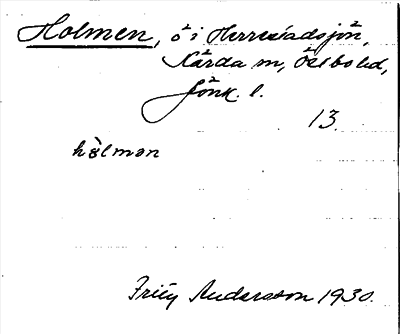 Holmen, ö i Herrestadsjön,
Kärda sn, Östbo hd,
Jönk. l.
13.
hòlmən
Fritz Andersson 1930.